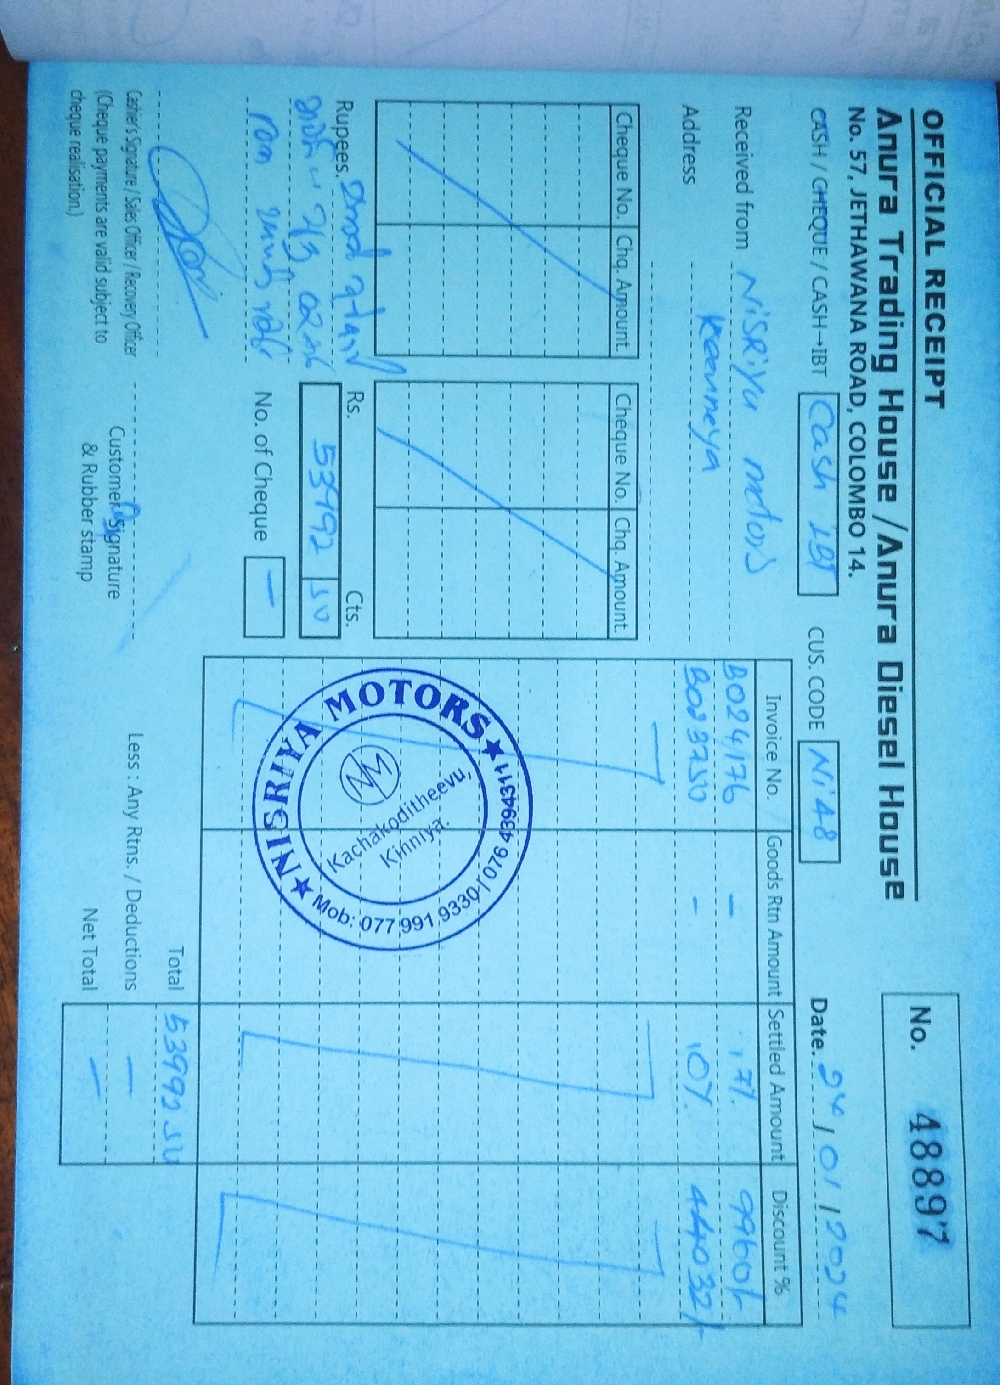 OFFICIAL RECEIPT
Anura Trading House / Anura Diesel House
No. 57, JETHAWANA ROAD, COLOMBO 14.
No. 48897
CASH / CHEQUE / CASH→IBT Cash IBT CUS. CODE Ni48 Date. 24/01/2024
Received from NiSRiya motors
Address Keenneya
Cheque No. Chq. Amount Cheque No. Chq. Amount
Invoice No. Goods Rtn Amount Settled Amount Discount %
B024176 - 17%. 9960/-
B023750 - 10%. 44032/-
Rupees.
Rs. Cts.
No. of Cheque -
NISRIYA MOTORS
Kachakoditheevu,
Kinniya.
Mob: 077 991 9330 / 076 4394311
Total 53992
Less : Any Rtns. / Deductions -
Net Total -
Cashier's Signature / Sales Officer / Recovery Officer
(Cheque payments are valid subject to
cheque realisation.)
Customer Signature
& Rubber stamp